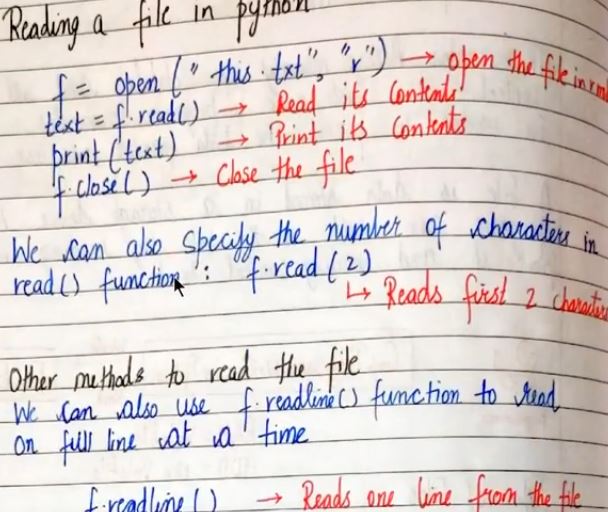 Reading a file in python
f = open ("this.txt", "r") → open the file in
text = f.read() → Read its Contents!
print (text) → Print its Contents
f.close() → Close the file
We can also specify the number of characters in
read() function : f.read (2)
↳ Reads first 2 characters
Other methods to read the file
We can also use f.readline() function to read
on full line at a time
f.readline() → Reads one line from the file